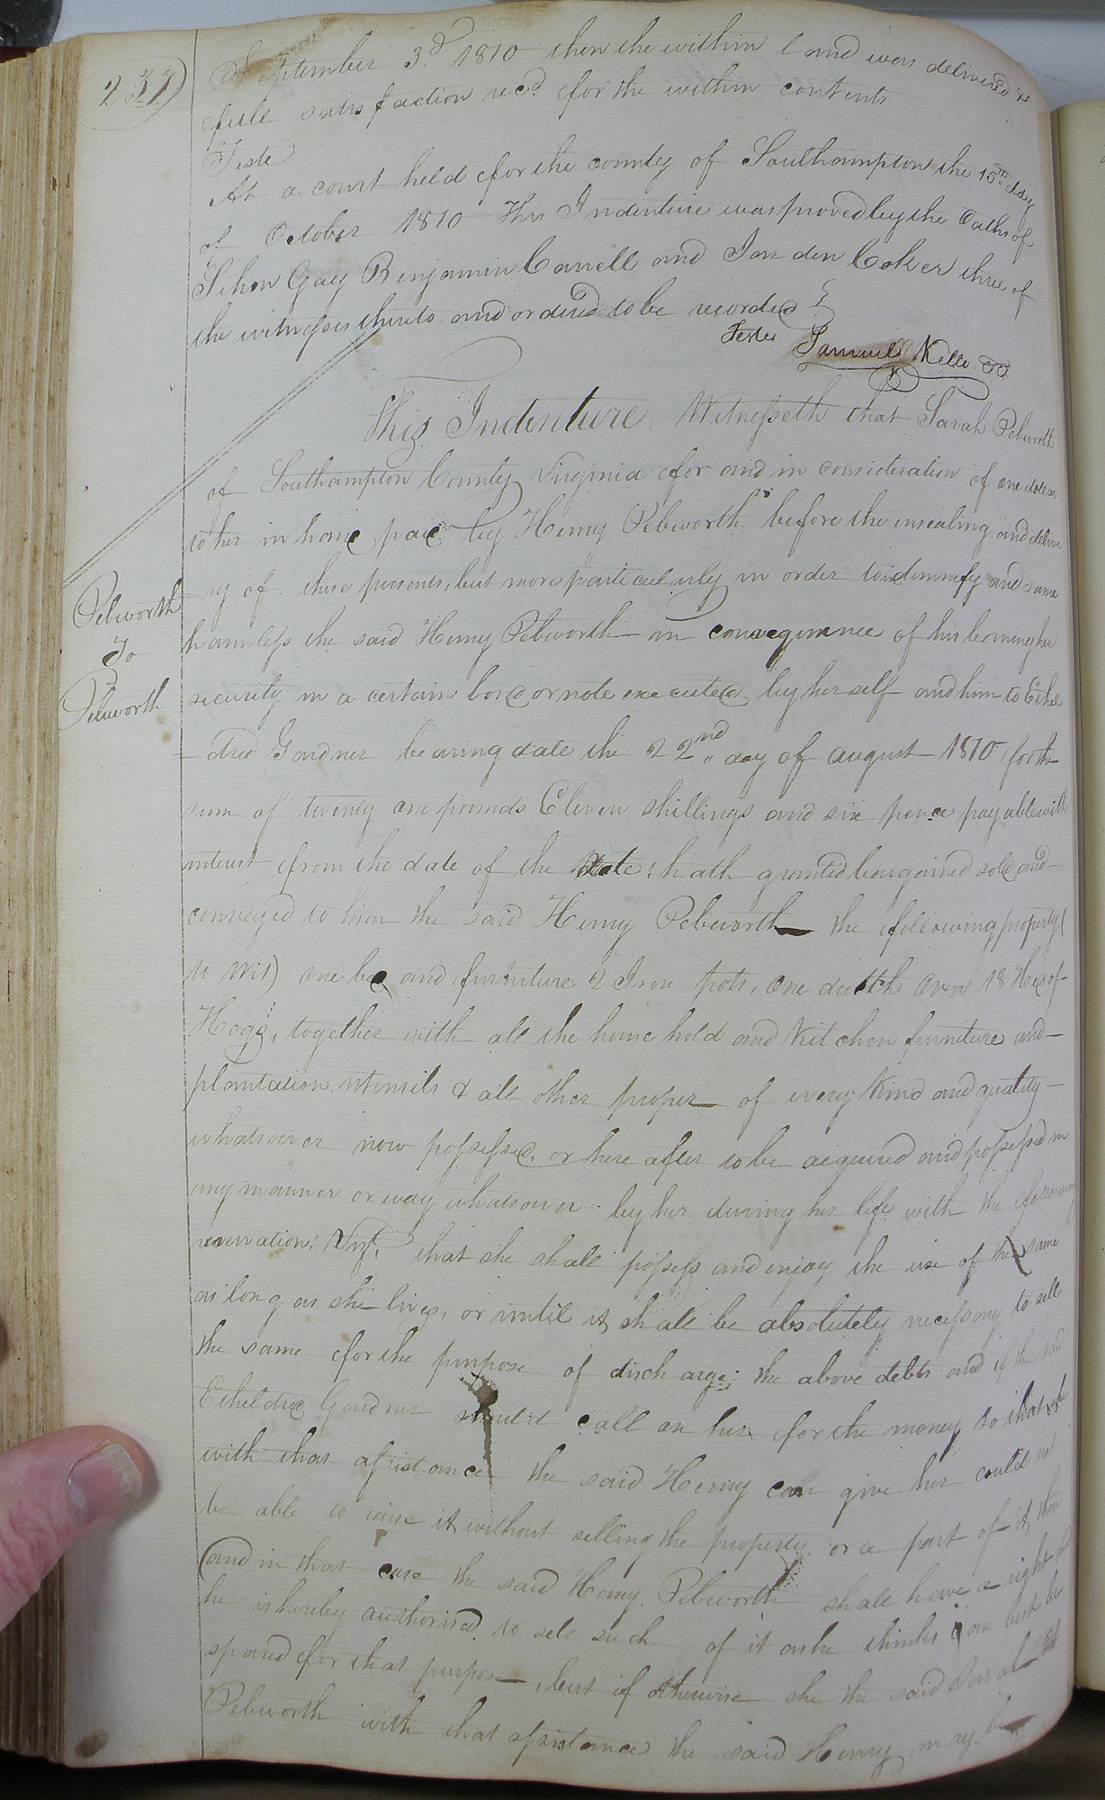 237)
September 3d. 1810 then the within Land was delivered &
full satisfaction recd for the within contents
Teste
At a court held for the county of Southampton the 15th day
of October 1810 This Indenture was proved by the Oaths of
Sihon Gay Benjamin Carrell and Jordon Coker three of
the witnesses thereto and ordered to be recorded
Teste Samuel Kello CC
This Indenture Witnesseth that Sarah Pebworth
of Southampton County Virginia for and in consideration of one dollar
to her in hand paid by Henry Pebworth before the ensealing and delive
ry of these presents, but more particularly in order to indemnify and same
harmless the said Henry Pebworth in consequence of his becoming her
Pebworth
To
Pebworth
security in a certain bond or note executed by herself and him to Ethel
-dred Gardner bearing date the 22nd day of august 1810 for the
sum of twenty one pounds Eleven shillings and six pence payable with
interest from the date of the Note: hath granted bargained sold and
conveyed to him the said Henry Pebworth the following property (
to wit) one bed and furniture 2 Iron pots, one dutch oven 18 Hed of
Hogs, together with all the house hold and Kitchen furniture and
plantation utensils & all other proper of every Kind and quality
whatsoever now possessed. or here after to be acquired and possessed in
any manner or way whatsoever by her during her life with the following
reservation: Viz. that she shall possess and enjoy the use of the same
as long as she lives, or until it shall be absolutely necessary to sell
the same for the purpose of discharge: the above debts and if the said
Etheldred Gardner should call on her for the money so that she
with that assistance the said Henry can give her could not
be able to raise it without selling the property or a part of it then
(and in that case the said Henry Pebworth shall have a right and
he is hereby authorised to sell such of it as he thinks can best be
spared for that purpose, but if otherwise she the said Sarah
Pebworth with that assistance the said Henry may be